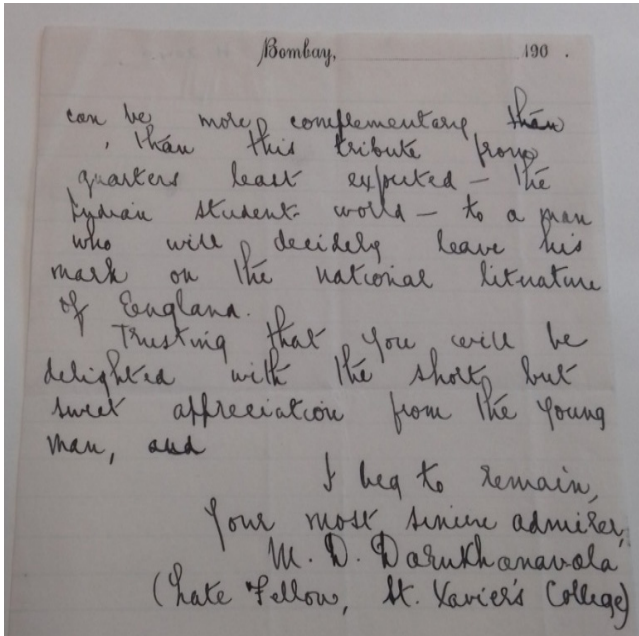 Bombay, 190 .
can be more complementary than
, than this tribute from
quarters least expected – the
Indian student-world – to a man
who will decidely leave his
mark on the national literature
of England.
Trusting that you will be
delighted with the short but
sweet appreciation from the young
man, and
I beg to remain,
Your most sincere admirer,
M. D. Darukhanavala
(Late Fellow, St. Xavier's College)